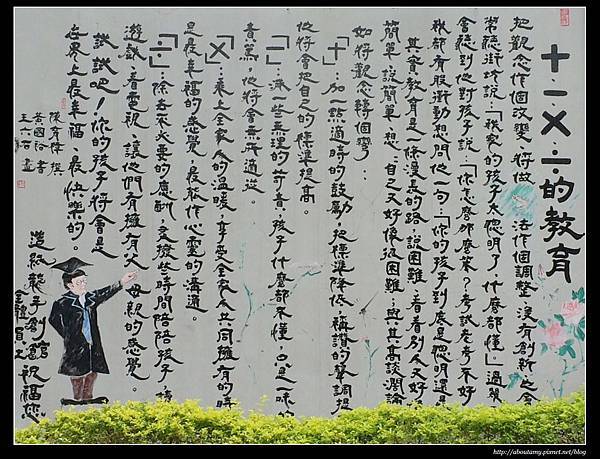 十一×÷的教育
把觀念作個改變,將做 法作個調整,沒有創新
常聽街坊說:「我家的孩子太聰明了,什麼都懂。」過
會聽到他對孩子說:「你怎麼那麼笨?考試老考不好
我都有股衝動想問他一句:你的孩子到底是聰明還是
其實教育是一條漫長的路,說困難,看看別人又好
簡單,說簡單,想想自己又好像很困難;與其高談濶論
如將觀念轉個彎:
「十」:加一點適時的鼓勵,把標準降低,稱讚的聲調提
他將會把自己的標準提高。
「一」:減一些無理的苛責,孩子什麼都不懂,只是一味的
責罵,他將會無所適從。
「×」:乘上全家人的溫暖,享受全家人共同擁有的時
是最幸福的感覺,最能作心靈的溝通。
「÷」:除去不必要的應酬,多撥些時間陪陪孩子,
遊戲、看電視,讓他們有擁有父 母親的感覺。
試試吧!你的孩子將會是
世界上最幸福、最快樂的。
撰
黃國裕 書
王六石 畫
造紙龍手創館 祝福您
全體員工
http://aboutamy.pixnet.net/blog